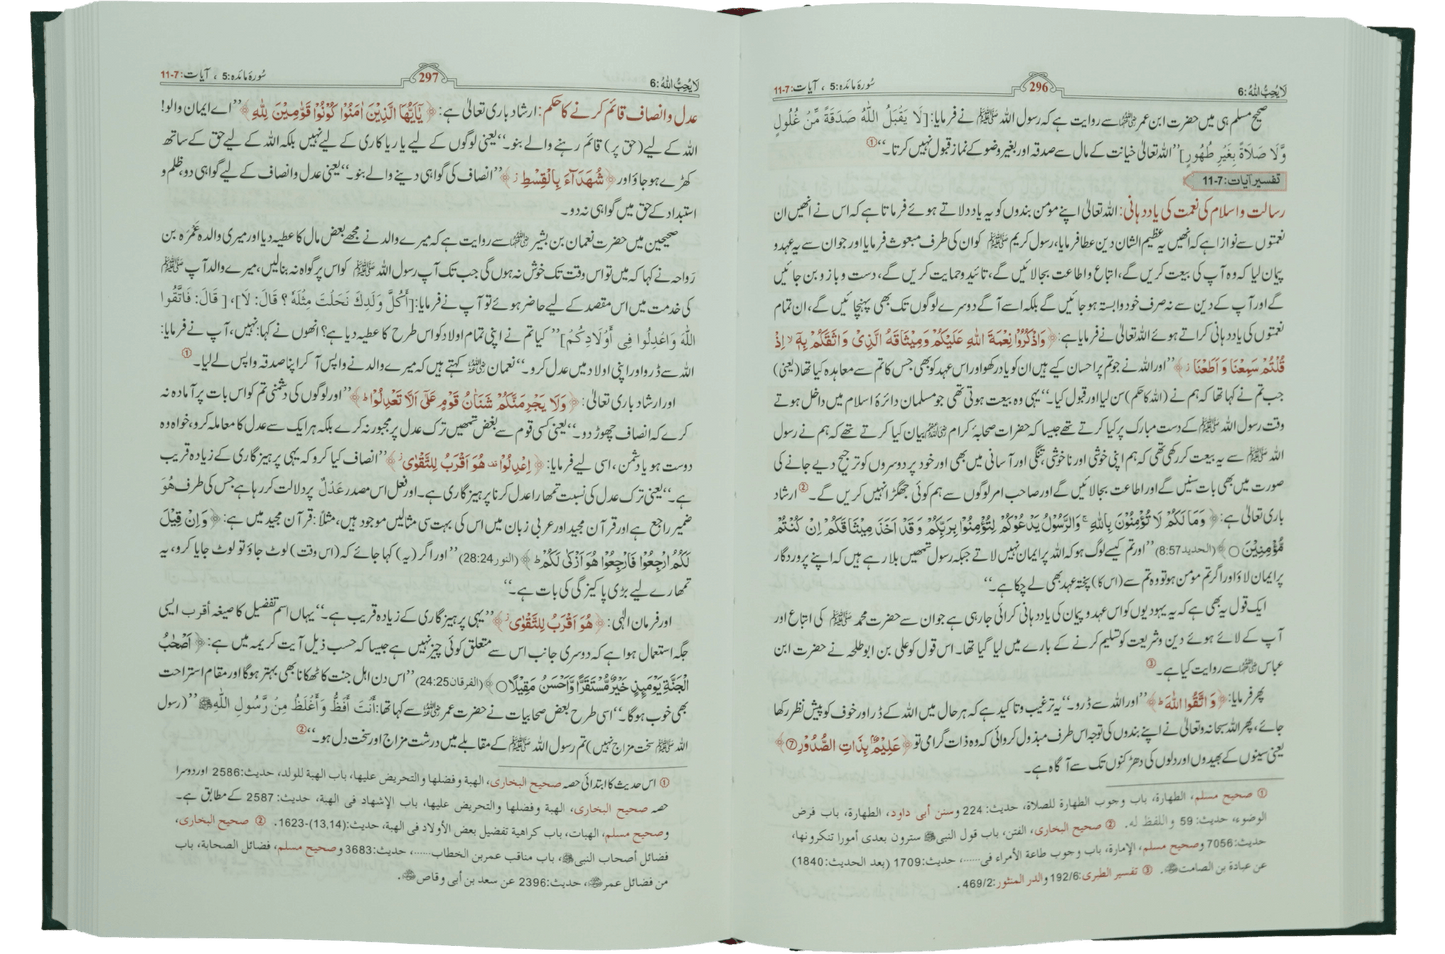 لَا یُحِبُّ اللّٰهُ: 6
296
سُورۂ مائدہ: 5 ، آیات: 7-11
صحیح مسلم ہی میں حضرت ابن عمر ؓ سے روایت ہے کہ رسول اللہ ﷺ نے فرمایا: [لَا يَقْبَلُ اللّٰهُ صَدَقَةً مِّنْ غُلُولٍ
وَّلَا صَلَاةً بِغَيْرِ طُهُورٍ] ’’اللہ تعالیٰ خیانت کے مال سے صدقہ اور بغیر وضو کے نماز قبول نہیں کرتا۔‘‘ ①
تفسیر آیات: 7-11
رسالت و اسلام کی نعمت کی یاد دہانی: اللہ تعالیٰ اپنے مومن بندوں کو یہ یاد دلاتے ہوئے فرماتا ہے کہ اس نے انھیں ان
نعمتوں سے نوازا ہے کہ انھیں یہ عظیم الشان دین عطا فرمایا، رسول کریم ﷺ کو ان کی طرف مبعوث فرمایا اور جو ان سے یہ عہد و
پیمان لیا کہ وہ آپ کی بیعت کریں گے، اتباع و اطاعت بجالائیں گے، تائید و حمایت کریں گے، دست و بازو بن جائیں
گے اور آپ کے دین سے نہ صرف خود وابستہ ہوجائیں گے بلکہ اسے آگے دوسرے لوگوں تک بھی پہنچائیں گے، ان تمام
نعمتوں کی یاد دہانی کراتے ہوئے اللہ تعالیٰ نے فرمایا ہے: ﴿وَاذْكُرُوْا نِعْمَةَ اللّٰهِ عَلَيْكُمْ وَمِيْثَاقَهُ الَّذِيْ وَاثَقَكُمْ بِهٖۤ ۙ اِذْ
قُلْتُمْ سَمِعْنَا وَاَطَعْنَا ؗ﴾ ’’اور اللہ نے جو تم پر احسان کیے ہیں ان کو یاد رکھو اور اس عہد کو بھی جس کا تم سے معاہدہ کیا تھا (یعنی)
جب تم نے کہا تھا کہ ہم نے (اللہ کا حکم) سن لیا اور قبول کیا۔‘‘ یہی وہ بیعت ہوتی تھی جو مسلمان دائرۂ اسلام میں داخل ہوتے
وقت رسول اللہ ﷺ کے دست مبارک پر کیا کرتے تھے جیسا کہ حضرات صحابۂ کرام ؓ بیان کیا کرتے تھے کہ ہم نے رسول
اللہ ﷺ سے یہ بیعت کر رکھی تھی کہ ہم اپنی خوشی اور ناخوشی، تنگی اور آسانی میں بھی اور خود پر دوسروں کو ترجیح دیے جانے کی
صورت میں بھی بات سنیں گے اور اطاعت بجالائیں گے اور صاحب امر لوگوں سے ہم کوئی جھگڑا نہیں کریں گے۔ ② ارشاد
باری تعالیٰ ہے: ﴿وَمَا لَكُمْ لَا تُؤْمِنُوْنَ بِاللّٰهِ ۚ وَالرَّسُوْلُ يَدْعُوْكُمْ لِتُؤْمِنُوْا بِرَبِّكُمْ وَقَدْ اَخَذَ مِيْثَاقَكُمْ اِنْ كُنْتُمْ
مُّؤْمِنِيْنَ ○﴾ (الحدید 8:57) ’’اور تم کیسے لوگ ہو کہ اللہ پر ایمان نہیں لاتے جبکہ رسول تمھیں بلا رہے ہیں کہ اپنے پروردگار
پر ایمان لاؤ اور اگر تم مومن ہو تو وہ تم سے (اس کا) پختہ عہد بھی لے چکا ہے۔‘‘
ایک قول یہ بھی ہے کہ یہ یہودیوں کو اس عہد و پیمان کی یاد دہانی کرائی جا رہی ہے جو ان سے حضرت محمد ﷺ کی اتباع اور
آپ کے لائے ہوئے دین و شریعت کو تسلیم کرنے کے بارے میں لیا گیا تھا۔ اس قول کو علی بن ابو طلحہ نے حضرت ابن
عباس ؓ سے روایت کیا ہے۔ ③
پھر فرمایا: ﴿وَاتَّقُوا اللّٰهَ ؕ﴾ ’’اور اللہ سے ڈرو۔‘‘ یہ ترغیب و تاکید ہے کہ ہر حال میں اللہ کے ڈر اور خوف کو پیش نظر رکھا
جائے، پھر اللہ سبحانہ وتعالیٰ نے اپنے بندوں کی توجہ اس طرف مبذول کروائی کہ وہ ذات گرامی تو ﴿عَلِيْمٌۢ بِذَاتِ الصُّدُوْرِ ⑦﴾
یعنی سینوں کے بھیدوں اور دلوں کی دھڑکنوں تک سے آگاہ ہے۔
① صحيح مسلم، الطهارة، باب وجوب الطهارة للصلاة، حديث: 224 وسنن أبي داود، الطهارة، باب فرض
الوضوء، حديث: 59 واللفظ له. ② صحيح البخاري، الفتن، باب قول النبي ﷺ سترون بعدي أمورا تنكرونها،
حديث: 7056 وصحيح مسلم، الإمارة، باب وجوب طاعة الأمراء في.....، حديث: 1709 (بعد الحديث: 1840)
عن عبادة بن الصامت ؓ. ③ تفسير الطبري: 192/6 والدر المنثور: 469/2.
لَا یُحِبُّ اللّٰهُ: 6
297
سُورۂ مائدہ: 5 ، آیات: 7-11
عدل و انصاف قائم کرنے کا حکم: ارشاد باری تعالیٰ ہے: ﴿يٰۤاَيُّهَا الَّذِيْنَ اٰمَنُوْا كُوْنُوْا قَوّٰمِيْنَ لِلّٰهِ﴾ ’’اے ایمان والو!
اللہ کے لیے (حق پر) قائم رہنے والے بنو۔‘‘ یعنی لوگوں کے لیے یا ریاکاری کے لیے نہیں بلکہ اللہ کے لیے حق کے ساتھ
کھڑے ہو جاؤ اور ﴿شُهَدَآءَ بِالْقِسْطِ ؗ﴾ ’’انصاف کی گواہی دینے والے بنو۔‘‘ یعنی عدل و انصاف کے لیے گواہی دو، ظلم و
استبداد کے حق میں گواہی نہ دو۔
صحیحین میں حضرت نعمان بن بشیر ؓ سے روایت ہے کہ میرے والد نے مجھے بعض مال کا عطیہ دیا اور میری والدہ عَمْرہ بن
رواحہ نے کہا کہ میں تو اس وقت تک خوش نہ ہوں گی جب تک آپ رسول اللہ ﷺ کو اس پر گواہ نہ بنالیں، میرے والد آپ ﷺ
کی خدمت میں اس مقصد کے لیے حاضر ہوئے تو آپ نے فرمایا: [أَكُلَّ وَلَدِكَ نَحَلْتَ مِثْلَهُ؟ قَالَ: لَا]، [قَالَ: فَاتَّقُوا
اللّٰهَ وَاعْدِلُوا فِي أَوْلَادِكُمْ] ’’کیا تم نے اپنی تمام اولاد کو اس طرح کا عطیہ دیا ہے؟ انھوں نے کہا: نہیں، آپ نے فرمایا:
اللہ سے ڈرو اور اپنی اولاد میں عدل کرو۔‘‘ نعمان ؓ کہتے ہیں کہ میرے والد نے واپس آ کر اپنا صدقہ واپس لے لیا۔ ①
اور ارشاد باری تعالیٰ: ﴿وَلَا يَجْرِمَنَّكُمْ شَنَاٰنُ قَوْمٍ عَلٰۤى اَلَّا تَعْدِلُوْا ؕ﴾ ’’اور لوگوں کی دشمنی تم کو اس بات پر آمادہ نہ
کرے کہ انصاف چھوڑ دو۔‘‘ یعنی کسی قوم سے بغض تمھیں ترک عدل پر مجبور نہ کرے بلکہ ہر ایک سے عدل کا معاملہ کرو، خواہ وہ
دوست ہو یا دشمن، اسی لیے فرمایا: ﴿اِعْدِلُوْا ۫ هُوَ اَقْرَبُ لِلتَّقْوٰى ؗ﴾ ’’انصاف کیا کرو کہ یہی پرہیز گاری کے زیادہ قریب
ہے۔‘‘ یعنی ترک عدل کی نسبت تمھارا عدل کرنا پرہیز گاری ہے۔ اور فعل اس مصدر عَدْلٌ پر دلالت کر رہا ہے جس کی طرف هُوَ
ضمیر راجع ہے اور قرآن مجید اور عربی زبان میں اس کی بہت سی مثالیں موجود ہیں، مثلاً: قرآن مجید میں ہے: ﴿وَاِنْ قِيْلَ
لَكُمُ ارْجِعُوْا فَارْجِعُوْا هُوَ اَزْكٰى لَكُمْ ؕ﴾ (النور 28:24) ’’اور اگر (یہ) کہا جائے کہ (اس وقت) لوٹ جاؤ تو لوٹ جایا کرو، یہ
تمھارے لیے بڑی پاکیزگی کی بات ہے۔‘‘
اور فرمان الٰہی: ﴿هُوَ اَقْرَبُ لِلتَّقْوٰى ؗ﴾ ’’یہی پرہیز گاری کے زیادہ قریب ہے۔‘‘ یہاں اسم تفضیل کا صیغہ أقرب ایسی
جگہ استعمال ہوا ہے کہ دوسری جانب اس سے متعلق کوئی چیز نہیں ہے جیسا کہ حسب ذیل آیت کریمہ میں ہے: ﴿اَصْحٰبُ
الْجَنَّةِ يَوْمَىِٕذٍ خَيْرٌ مُّسْتَقَرًّا وَّاَحْسَنُ مَقِيْلًا ○﴾ (الفرقان 24:25) ’’اس دن اہل جنت کا ٹھکانا بھی بہتر ہوگا اور مقام استراحت
بھی خوب ہوگا۔‘‘ اسی طرح بعض صحابیات نے حضرت عمر ؓ سے کہا تھا: أَنْتَ أَفَظُّ وَأَغْلَظُ مِنْ رَّسُولِ اللّٰهِ ﷺ ’’(رسول
اللہ ﷺ سخت مزاج نہیں) تم رسول اللہ ﷺ کے مقابلے میں درشت مزاج اور سخت دل ہو۔‘‘ ②
① اس حدیث کا ابتدائی حصہ صحيح البخاري، الهبة وفضلها والتحريض عليها، باب الهبة للولد، حديث: 2586 اور دوسرا
حصہ صحيح البخاري، الهبة وفضلها والتحريض عليها، باب الإشهاد في الهبة، حديث: 2587 کے مطابق ہے۔
وصحيح مسلم، الهبات، باب كراهية تفضيل بعض الأولاد في الهبة، حديث: (13,14)-1623. ② صحيح البخاري،
فضائل أصحاب النبي ﷺ، باب مناقب عمر بن الخطاب......، حديث: 3683 وصحيح مسلم، فضائل الصحابة، باب
من فضائل عمر ؓ، حديث: 2396 عن سعد بن أبي وقاص ؓ.